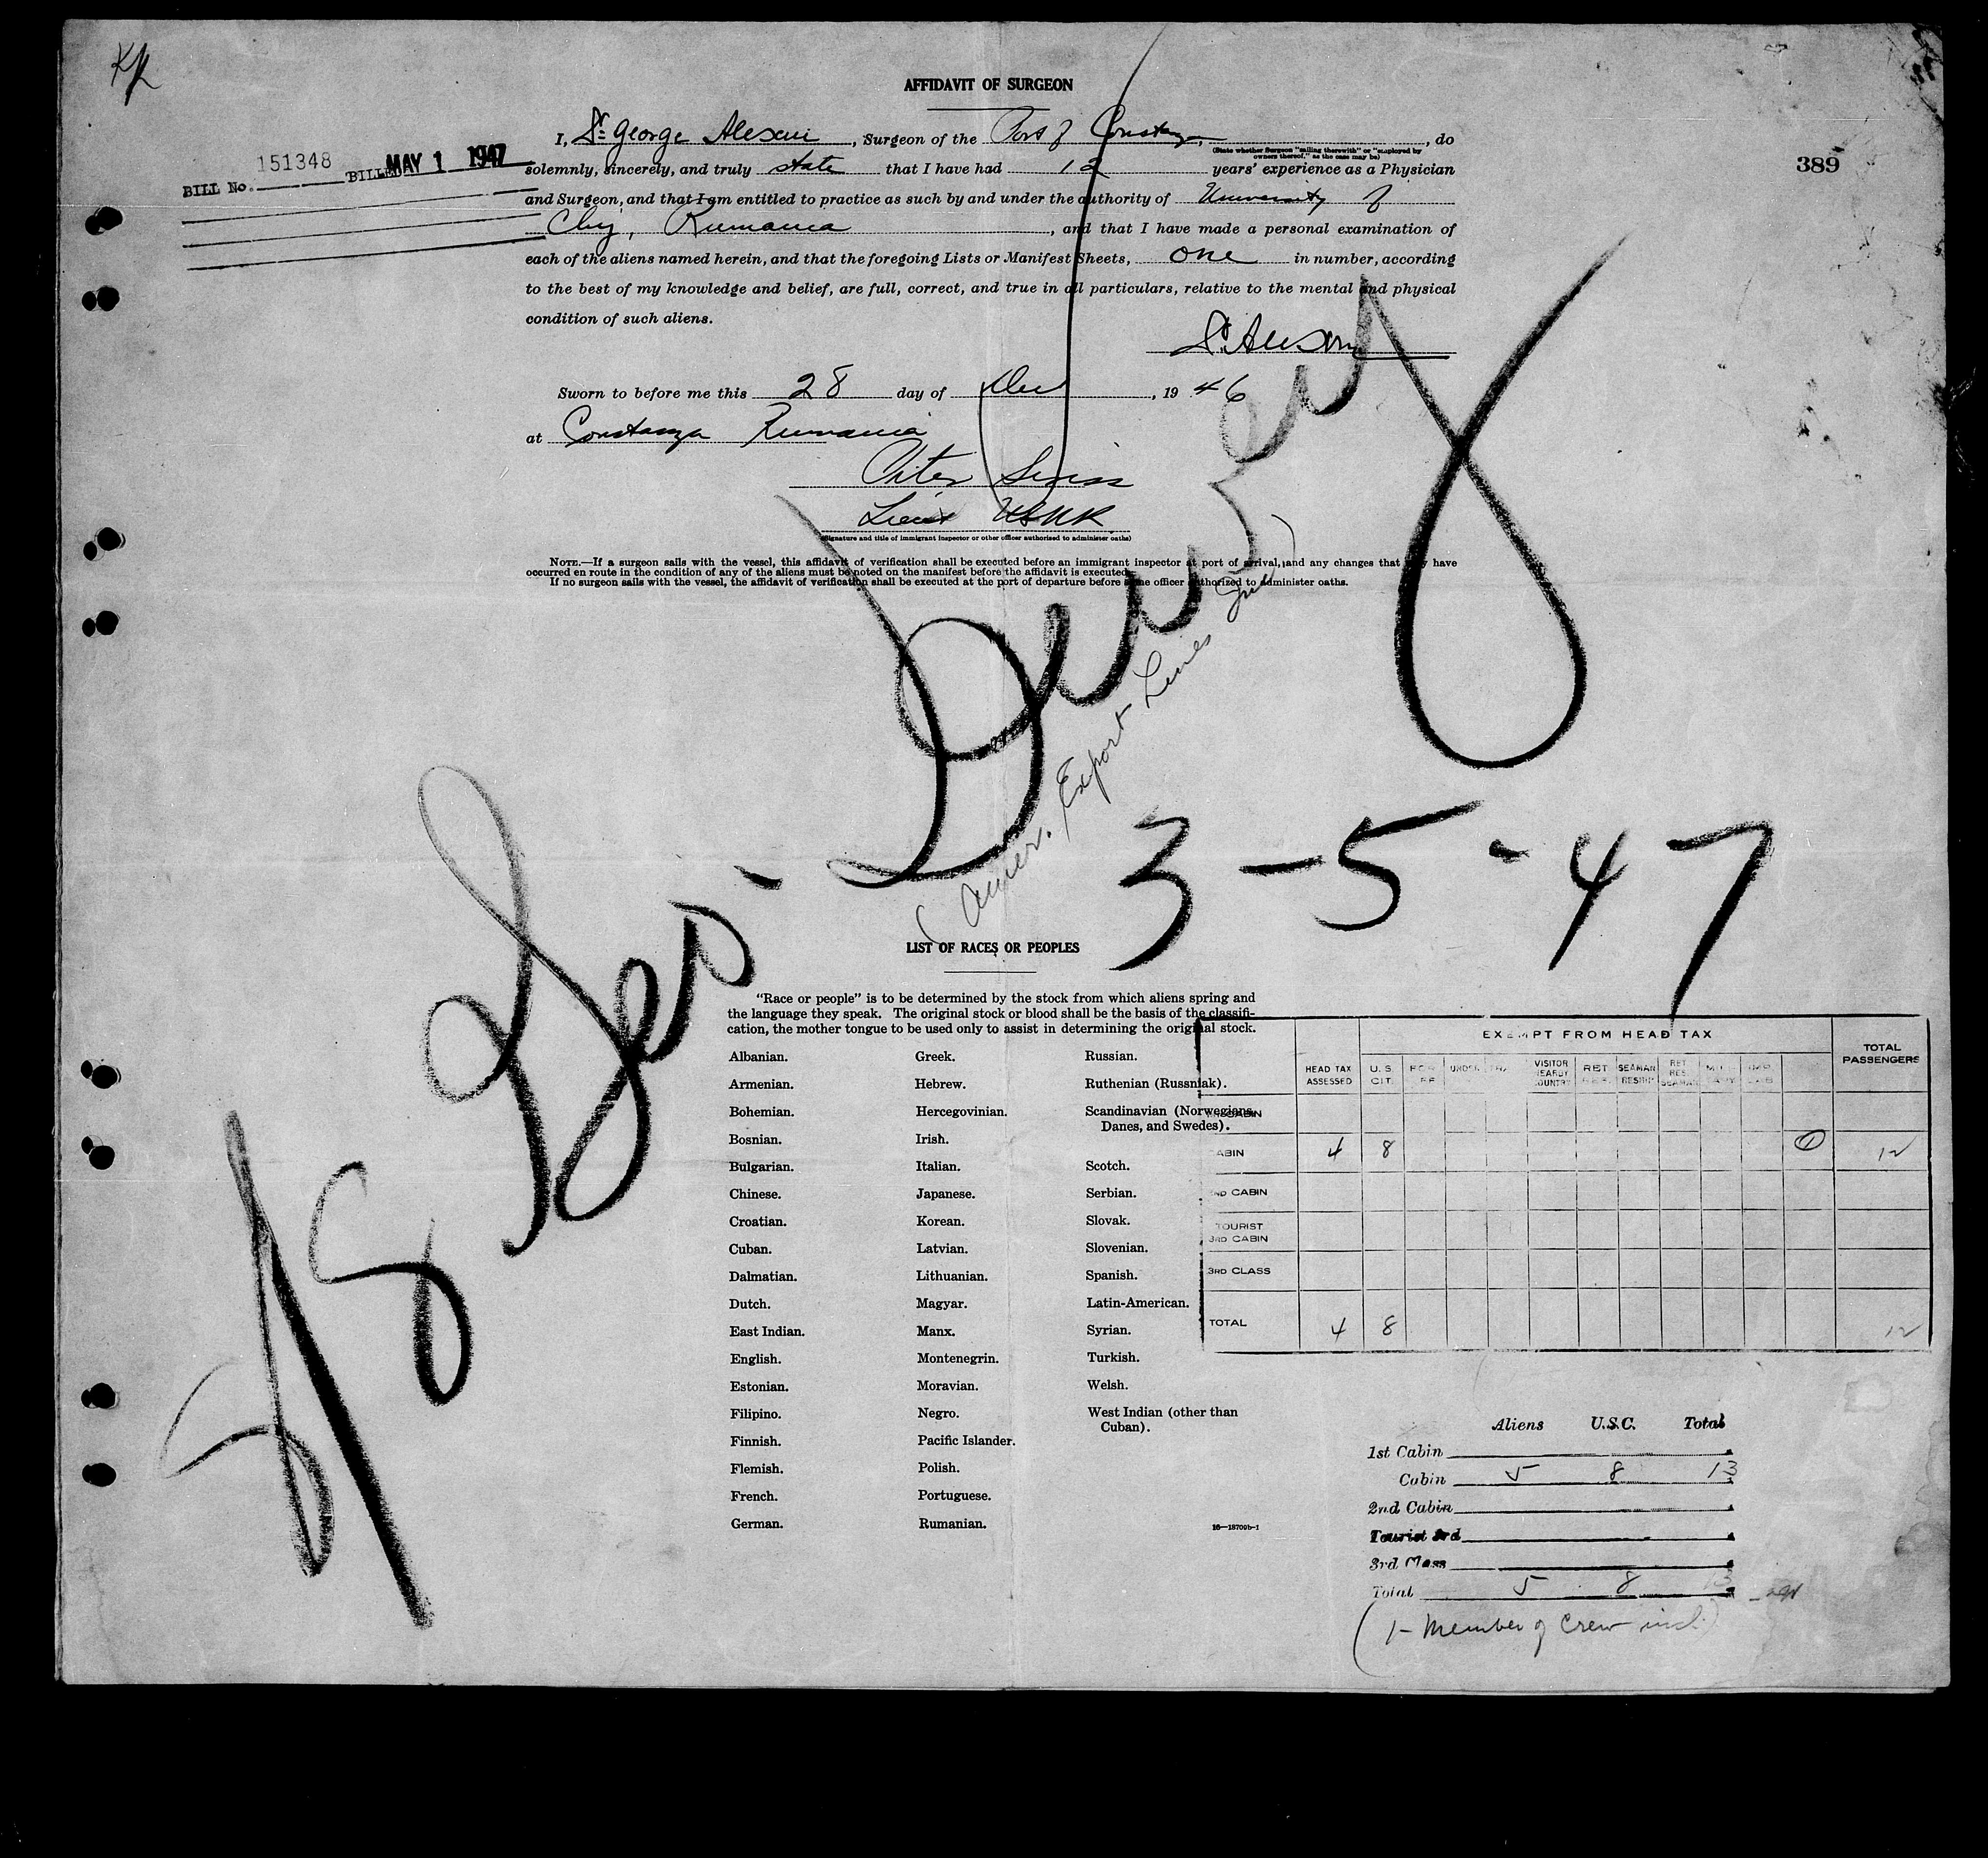 AFFIDAVIT OF SURGEON
I, Dr. George Alexan, Surgeon of the Port of Constanza, , do
(State whether Surgeon "sailing therewith" or "employed by
owners thereof," as the case may be)
389
151348
BILL No. BILLED MAY 1 1947
solemnly, sincerely, and truly state that I have had 12 years' experience as a Physician
and Surgeon, and that I am entitled to practice as such by and under the authority of University of
Cluj, Rumania, and that I have made a personal examination of
each of the aliens named herein, and that the foregoing Lists or Manifest Sheets, one in number, according
to the best of my knowledge and belief, are full, correct, and true in all particulars, relative to the mental and physical
condition of such aliens.
Sworn to before me this 28 day of Dec, 19 46
at Constanza Rumania
Lieut USNR
(Signature and title of immigrant inspector or other officer authorized to administer oaths)
NOTE.—If a surgeon sails with the vessel, this affidavit of verification shall be executed before an immigrant inspector at port of arrival, and any changes that may have
occurred en route in the condition of any of the aliens must be noted on the manifest before the affidavit is executed.
If no surgeon sails with the vessel, the affidavit of verification shall be executed at the port of departure before some officer authorized to administer oaths.
SS Geo. Dewey
(Amer. Export Lines Inc)
3-5-47
LIST OF RACES OR PEOPLES
"Race or people" is to be determined by the stock from which aliens spring and
the language they speak. The original stock or blood shall be the basis of the classifi-
cation, the mother tongue to be used only to assist in determining the original stock.
Albanian. Greek. Russian.
Armenian. Hebrew. Ruthenian (Russniak).
Bohemian. Hercegovinian. Scandinavian (Norwegians,
Danes, and Swedes).
Bosnian. Irish.
Bulgarian. Italian. Scotch.
Chinese. Japanese. Serbian.
Croatian. Korean. Slovak.
Cuban. Latvian. Slovenian.
Dalmatian. Lithuanian. Spanish.
Dutch. Magyar. Latin-American.
East Indian. Manx. Syrian.
English. Montenegrin. Turkish.
Estonian. Moravian. Welsh.
Filipino. Negro. West Indian (other than
Cuban).
Finnish. Pacific Islander.
Flemish. Polish.
French. Portuguese.
German. Rumanian.
16—18709b-1
EXEMPT FROM HEAD TAX
HEAD TAX ASSESSED U.S. CIT. UNDER VISITOR NEARBY COUNTRY RET RES. SEAMAN RESIDN RET RES. SEAMAN TOTAL PASSENGERS
CABIN
CABIN 4 8 1 12
2ND CABIN
TOURIST
3RD CABIN
3RD CLASS
TOTAL 4 8 12
Aliens U.S.C. Total
1st Cabin
Cabin 5 8 13
2nd Cabin
Tourist 3rd
3rd Class
Total 5 8 13
(1- Member of Crew incl.)